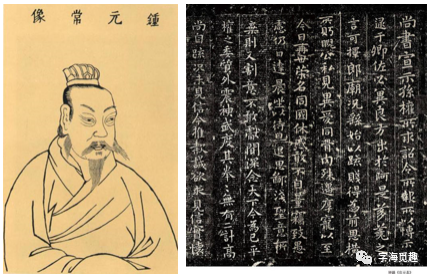 鍾元常像
尚書宣示孫權所求詔令所報所以博示
逮于卿佐必冀良方出於阿是芻蕘之
言可擇郎廟況繇始以疏賤得為前思橫
所眄睨公私見異愛同骨肉殊遇厚寵以至
今日再世榮名同國休慼敢不自量竊致愚
慮仍日達晨坐以待旦退思鄙淺聖意所
棄則又割意不敢獻聞深念天下今為已平
權之委質外震神武度其拳拳無有二計高
尚自疏況未見信今推款誠欲求見信實懷
字海觅趣